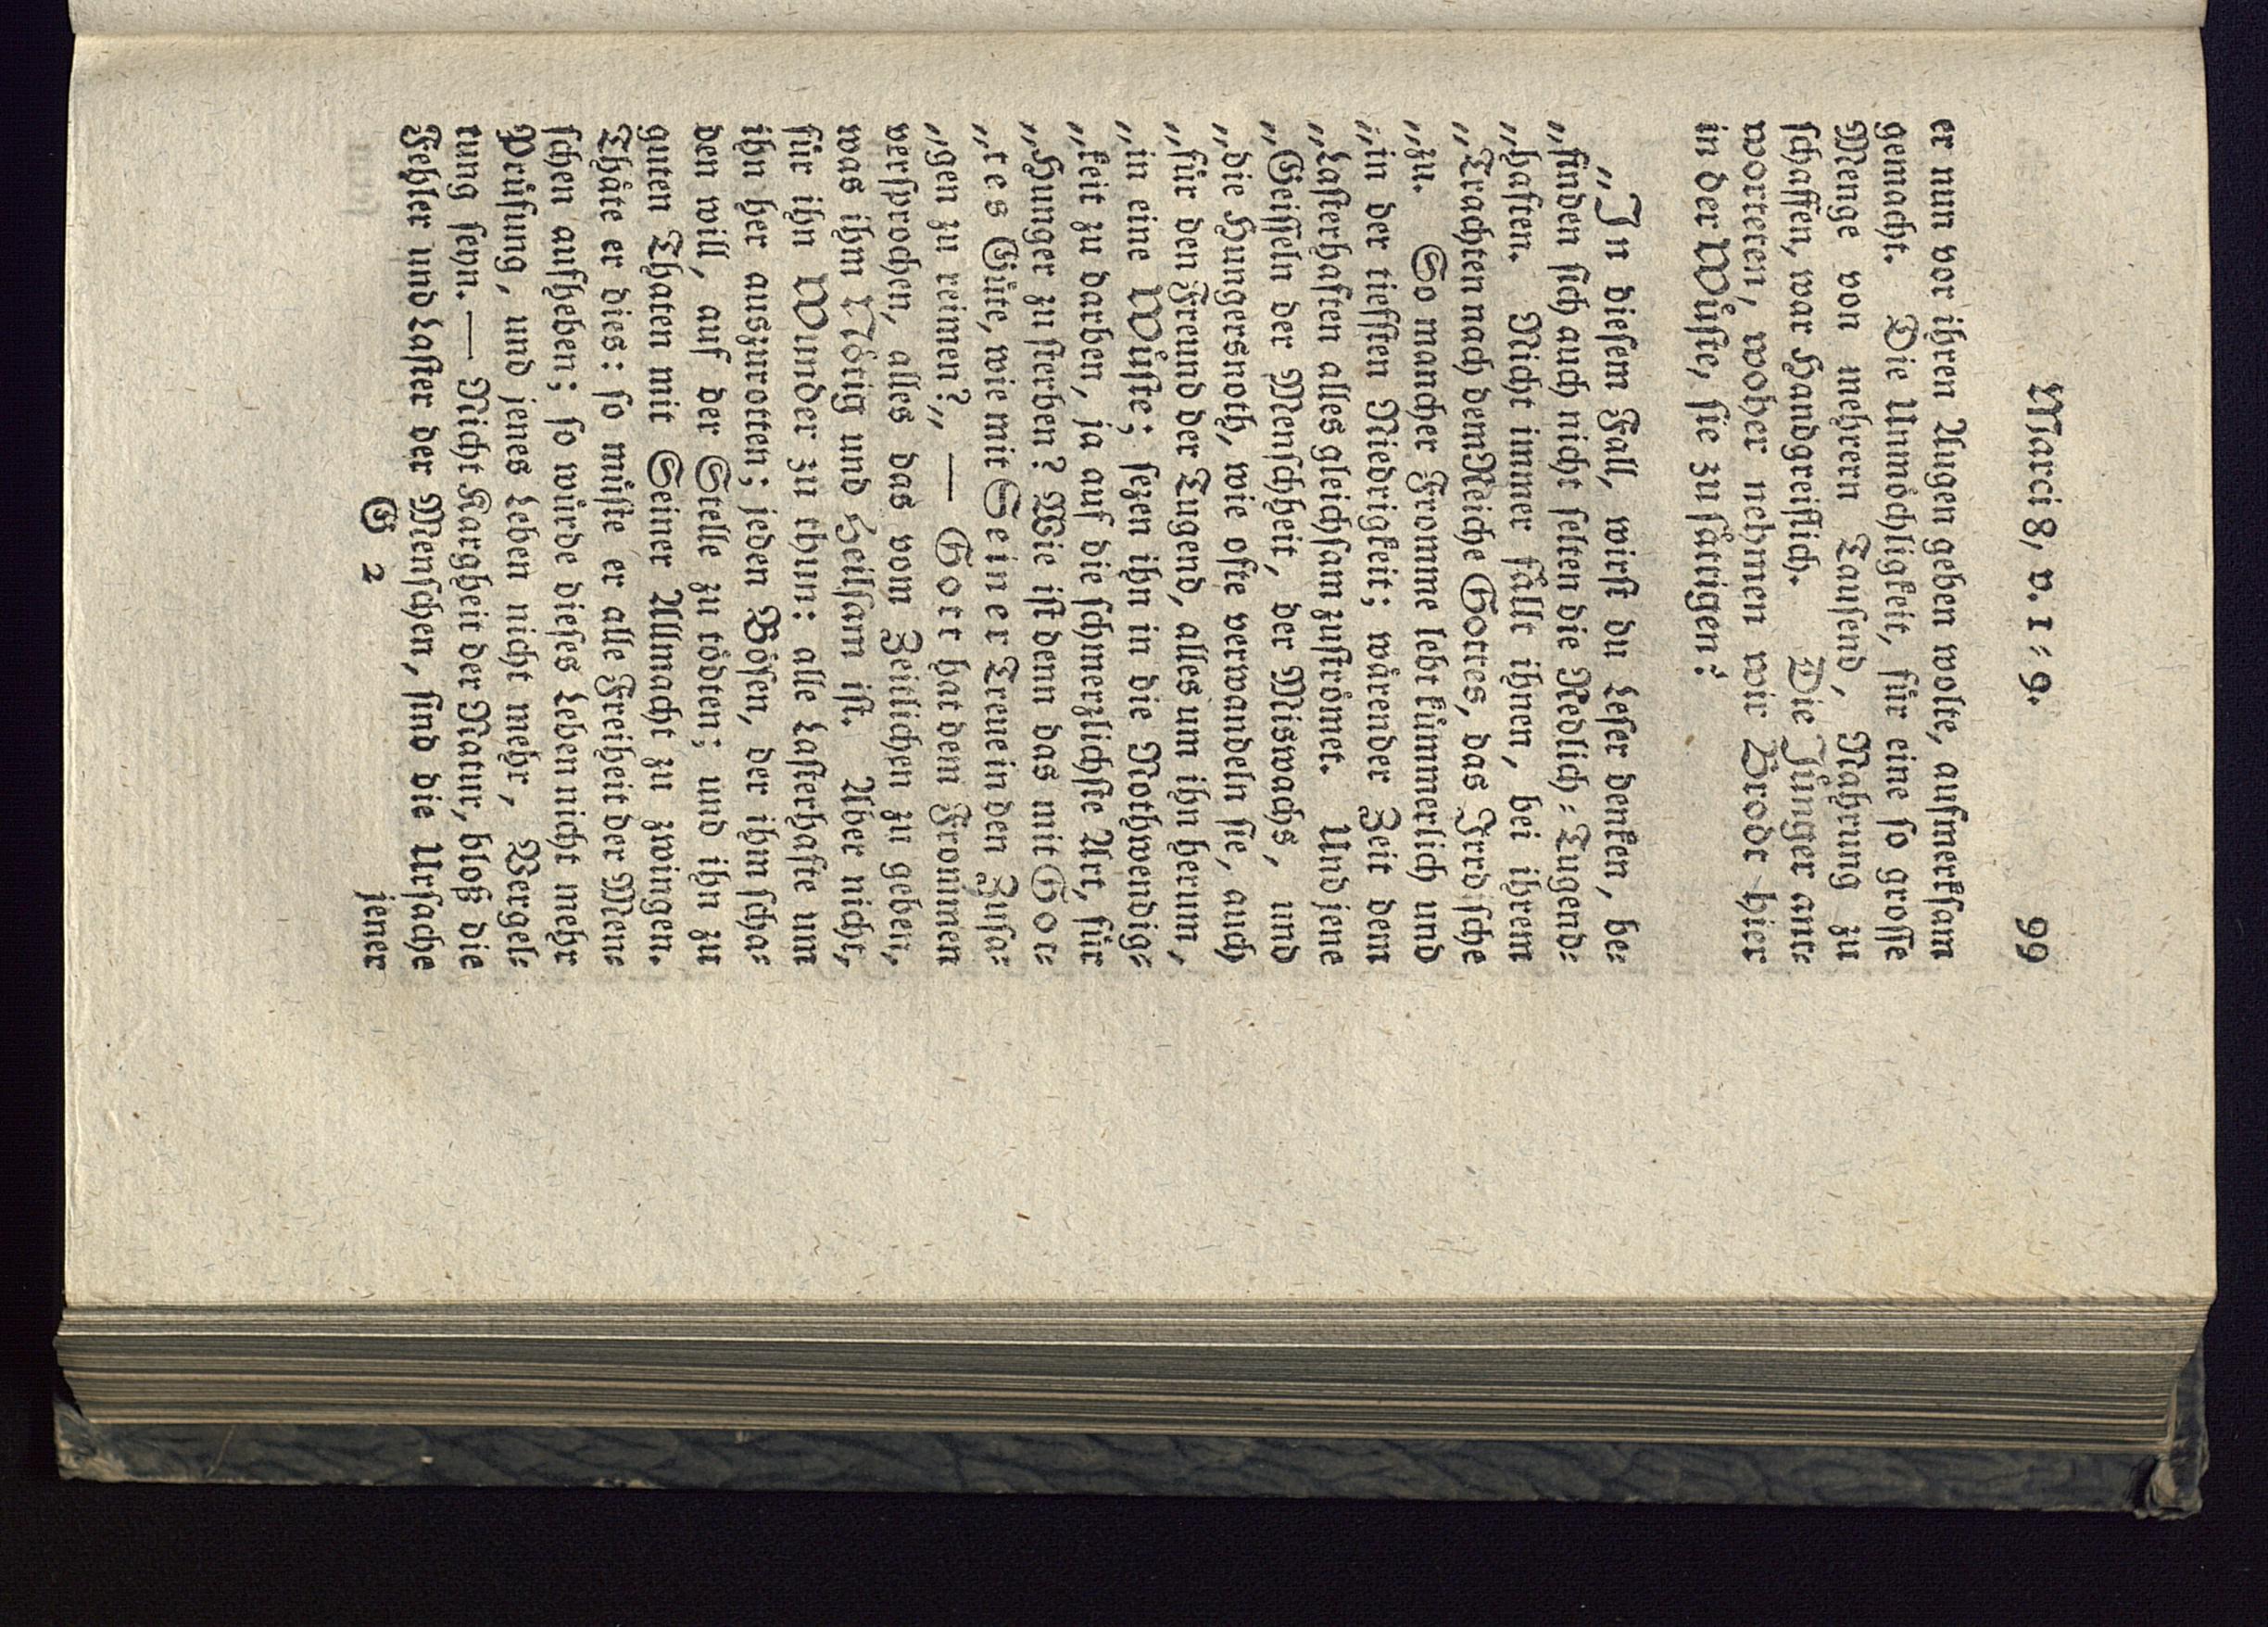 Marci 8, v. 1 = 9. 99
er nun vor ihren Augen geben wolte, aufmerkſam
gemacht. Die Unmöchligkeit, für eine ſo groſſe
Menge von mehrern Tauſend, Nahrung zu
ſchaffen, war Handgreiflich. Die Jünger ant⸗
worteten, woher nehmen wir Brodt hier
in der Wüſte, ſie zu ſättigen?
„In dieſem Fall, wirſt du Leſer denken, be⸗
„finden ſich auch nicht ſelten die Redlich⸗Tugend⸗
„haften. Nicht immer fällt ihnen, bei ihrem
„Trachten nach dem Reiche Gottes, das Irrdiſche
„zu. So mancher Fromme lebt kümmerlich und
„in der tiefſten Niedrigkeit; wärender Zeit dem
„Laſterhaften alles gleichſam zuſtrömet. Und jene
„Geiſſeln der Menſchheit, der Miswachs, und
„die Hungersnoth, wie ofte verwandeln ſie, auch
„für den Freund der Tugend, alles um ihn herum,
„in eine Wüſte; ſezen ihn in die Nothwendig⸗
„keit zu darben, ja auf die ſchmerzlichſte Art, für
„Hunger zu ſterben? Wie iſt denn das mit Got⸗
„tes Güte, wie mit Seiner Treue in den Zuſa⸗
„gen zu reimen?„ — Gott hat dem Frommen
verſprochen, alles das vom Zeitlichen zu geben,
was ihm Nötig und Heilſam iſt. Aber nicht,
für ihn Wunder zu thun: alle Laſterhafte um
ihn her auszurotten; jeden Böſen, der ihm ſcha⸗
den will, auf der Stelle zu tödten; und ihn zu
guten Thaten mit Seiner Allmacht zu zwingen.
Thäte er dies: ſo müſte er alle Freiheit der Men⸗
ſchen aufheben; ſo würde dieſes Leben nicht mehr
Prüfung, und jenes Leben nicht mehr, Vergel⸗
tung ſeyn. — Nicht Kargheit der Natur, bloß die
Fehler und Laſter der Menſchen, ſind die Urſache
G 2 jener